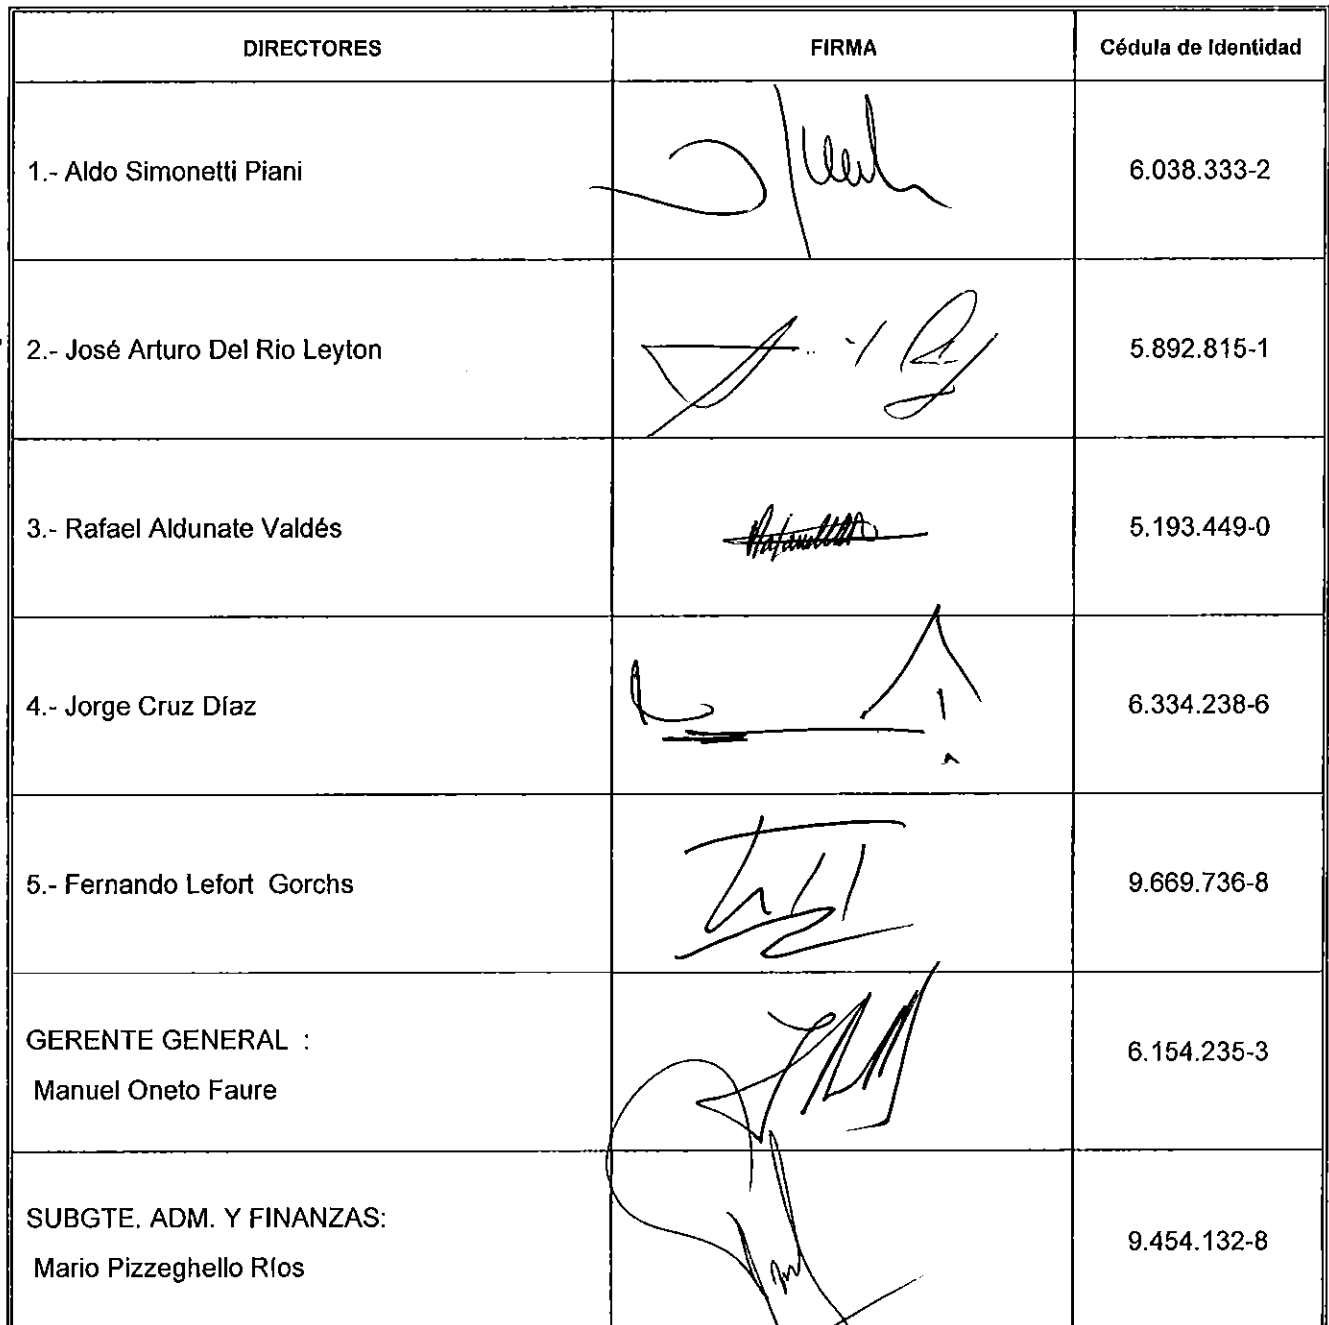 DIRECTORES FIRMA Cédula de Identidad
1.- Aldo Simonetti Piani 6.038.333-2
2.- José Arturo Del Rio Leyton 5.892.815-1
3.- Rafael Aldunate Valdés 5.193.449-0
4.- Jorge Cruz Díaz 6.334.238-6
5.- Fernando Lefort Gorchs 9.669.736-8
GERENTE GENERAL :
Manuel Oneto Faure 6.154.235-3
SUBGTE. ADM. Y FINANZAS:
Mario Pizzeghello Ríos 9.454.132-8